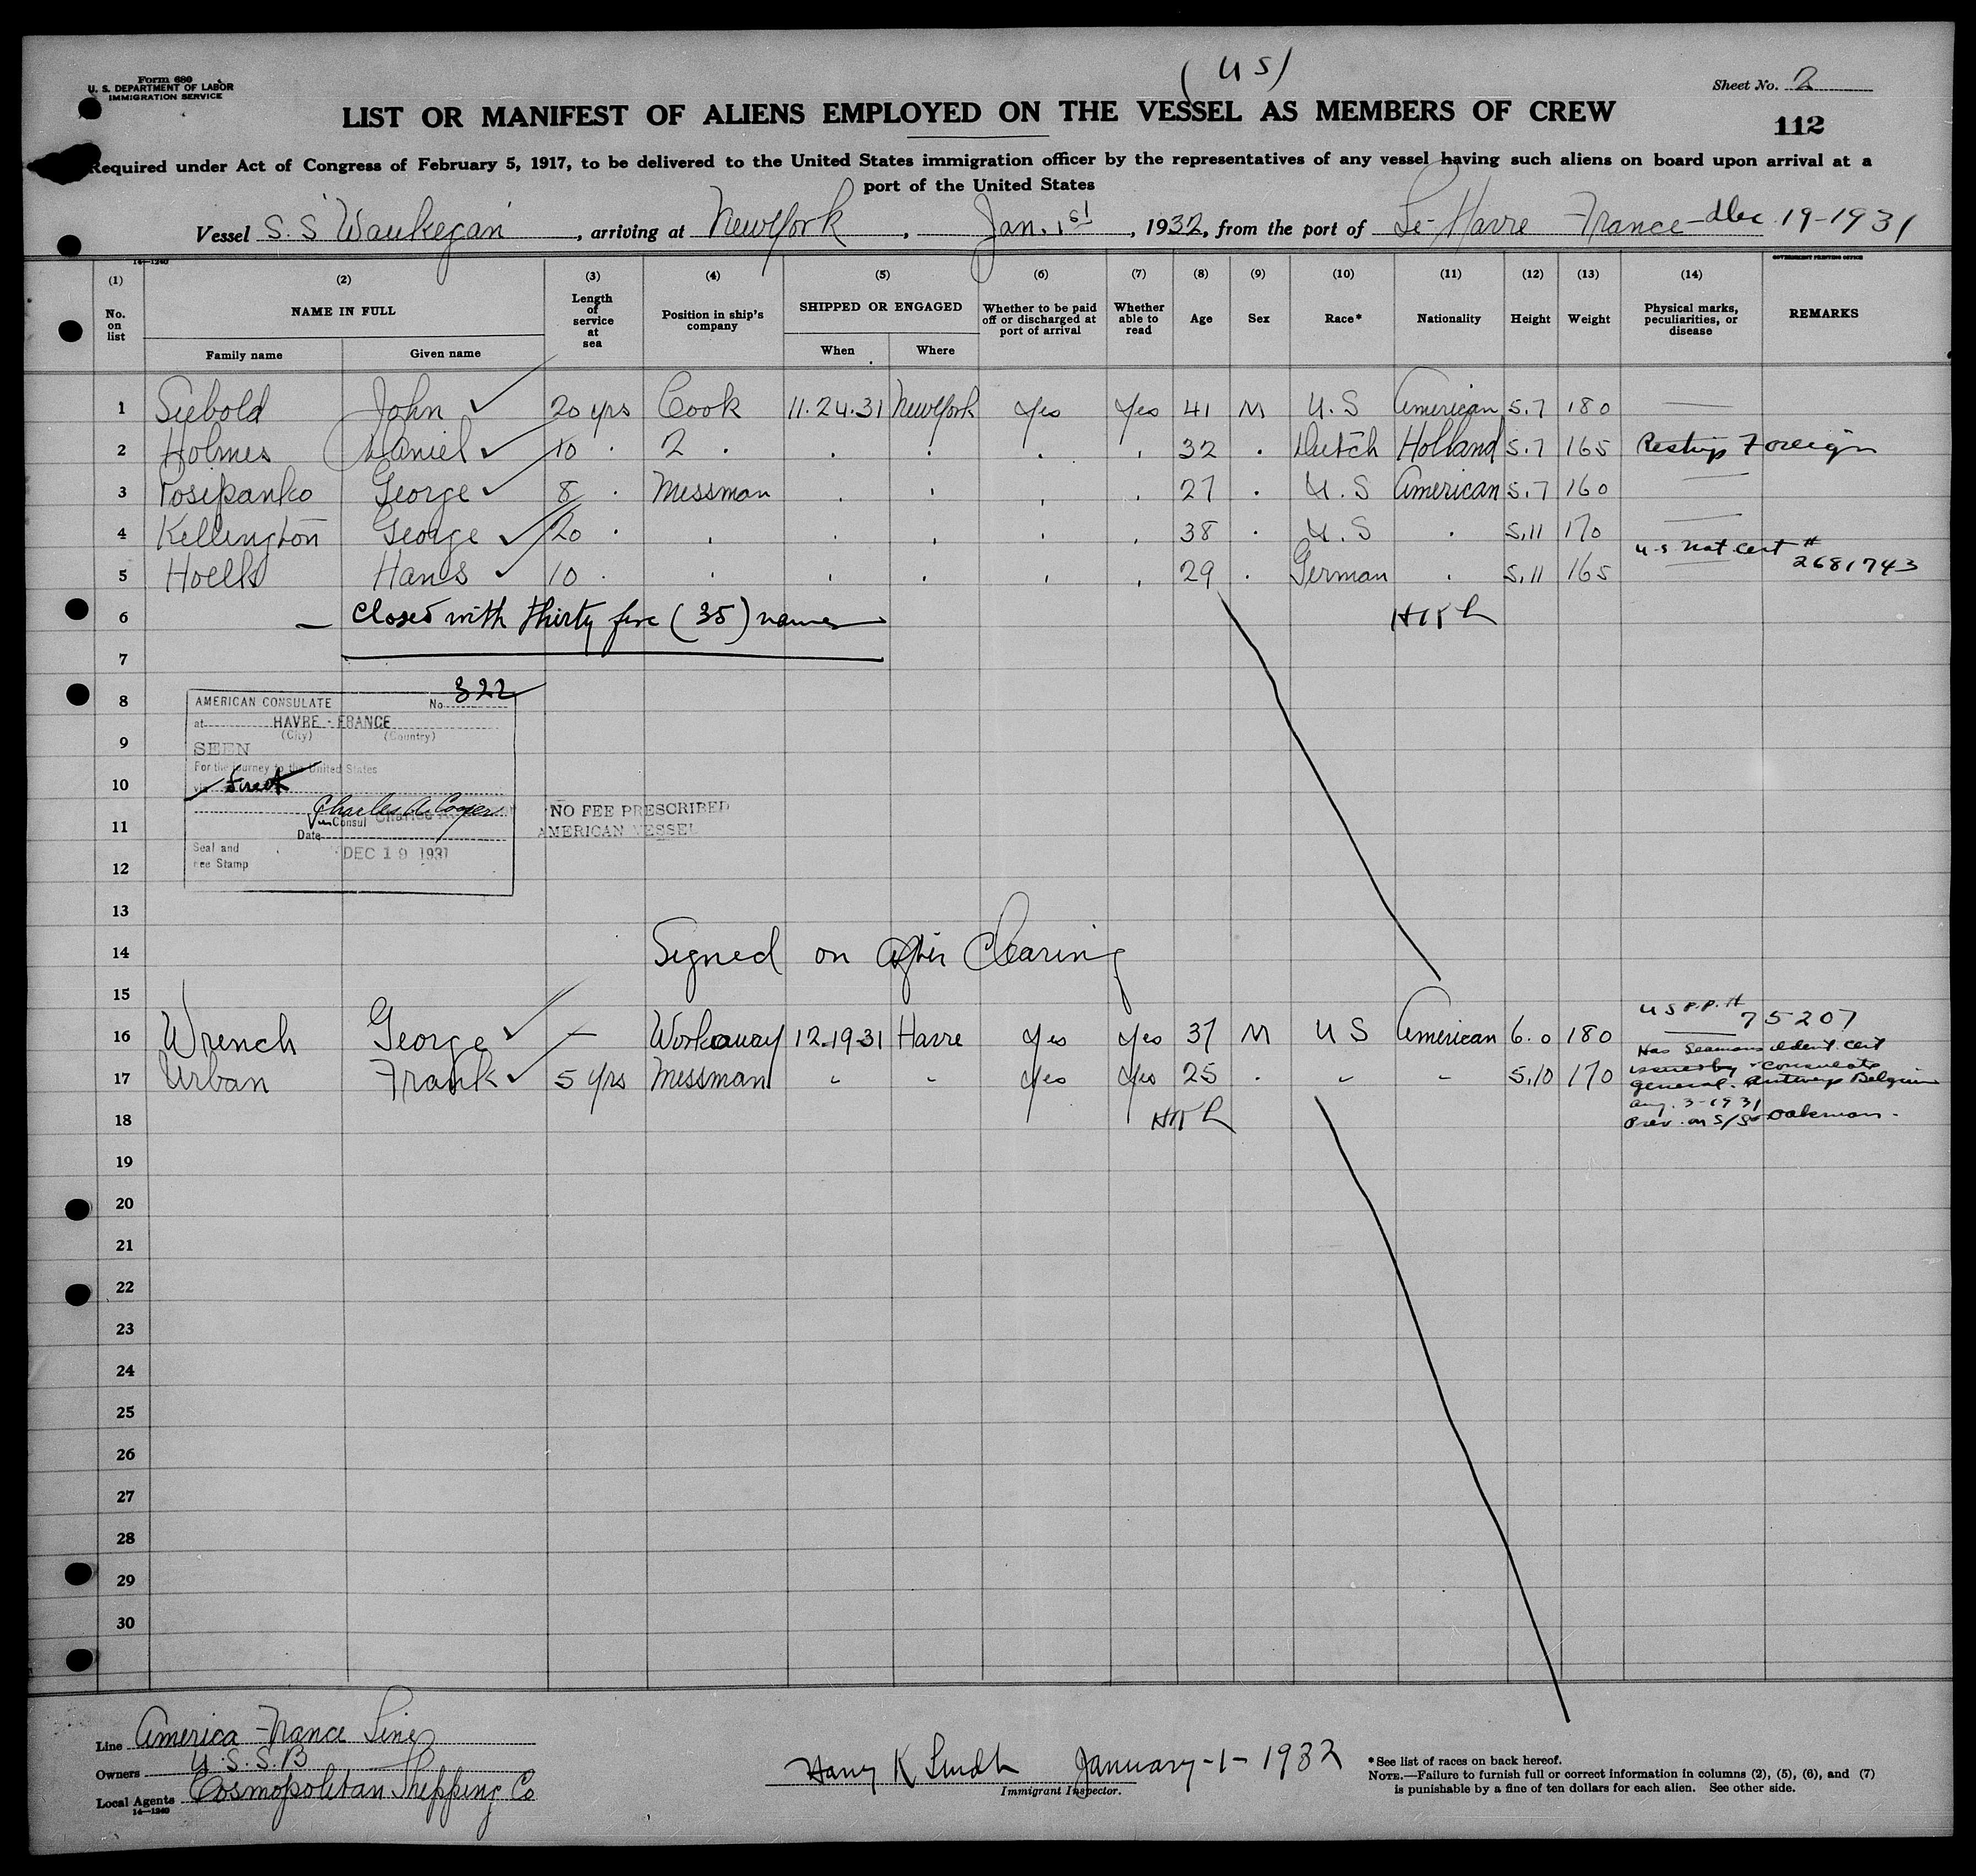 Form 680
U. S. DEPARTMENT OF LABOR
IMMIGRATION SERVICE
( U S )
Sheet No. 2
LIST OR MANIFEST OF ALIENS EMPLOYED ON THE VESSEL AS MEMBERS OF CREW
112
Required under Act of Congress of February 5, 1917, to be delivered to the United States immigration officer by the representatives of any vessel having such aliens on board upon arrival at a
port of the United States
Vessel S. S "Waukegan", arriving at New York, Jan. 1st, 1932, from the port of Le-Havre France - dec 19-1931
14—1240
GOVERNMENT PRINTING OFFICE
(1) No. on list (2) NAME IN FULL Family name Given name (3) Length of service at sea (4) Position in ship's company (5) SHIPPED OR ENGAGED When Where (6) Whether to be paid off or discharged at port of arrival (7) Whether able to read (8) Age (9) Sex (10) Race* (11) Nationality (12) Height (13) Weight (14) Physical marks, peculiarities, or disease REMARKS
1 Siebold John ✓ 20 yrs Cook 11.24.31 New York Yes Yes 41 M U.S American 5.7 180 —
2 Holmes Daniel ✓ 10 . 2 . . . . . 32 . Dutch Holland 5.7 165 Reship Foreign
3 Posipanko George ✓ 8 . Messman . . . . 27 . U.S American 5.7 160 —
4 Kellington George ✓ 20 . . . . . . 38 . U.S . 5.11 170 —
5 Hans ✓ 10 . . . . . . 29 . German . 5.11 165 U-S Nat Cert # 2681743
6 — Closed with thirty five (35) names — HKL
7
8
AMERICAN CONSULATE No. 322
at HAVRE - FRANCE
(City) (Country)
9
SEEN
For the journey to the United States
10
via direct
Charles A. Cooper
Vice Consul
NO FEE PRESCRIBED
11
Date
AMERICAN VESSEL
Seal and
DEC 19 1931
Fee Stamp
12
13
14 Signed on After Clearing
15
16 Wrench George ✓ — Workaway 12.19.31 Havre Yes Yes 37 M U S American 6.0 180 U S P.P. # 75207
17 Urban Frank ✓ 5 yrs Messman " " Yes Yes 25 . " " 5.10 170 Has Seamans ident. cert
issued by Consulate
General. Antwerp Belgium
Aug. 3-1931
18 HKL Prev. on S/S Oakman.
19
20
21
22
23
24
25
26
27
28
29
30
Line America France Line
Owners U.S.S.B
Local Agents Cosmopolitan Shipping Co
14—1240
Harry K January-1-1932
Immigrant Inspector.
*See list of races on back hereof.
NOTE.—Failure to furnish full or correct information in columns (2), (5), (6), and (7)
is punishable by a fine of ten dollars for each alien. See other side.